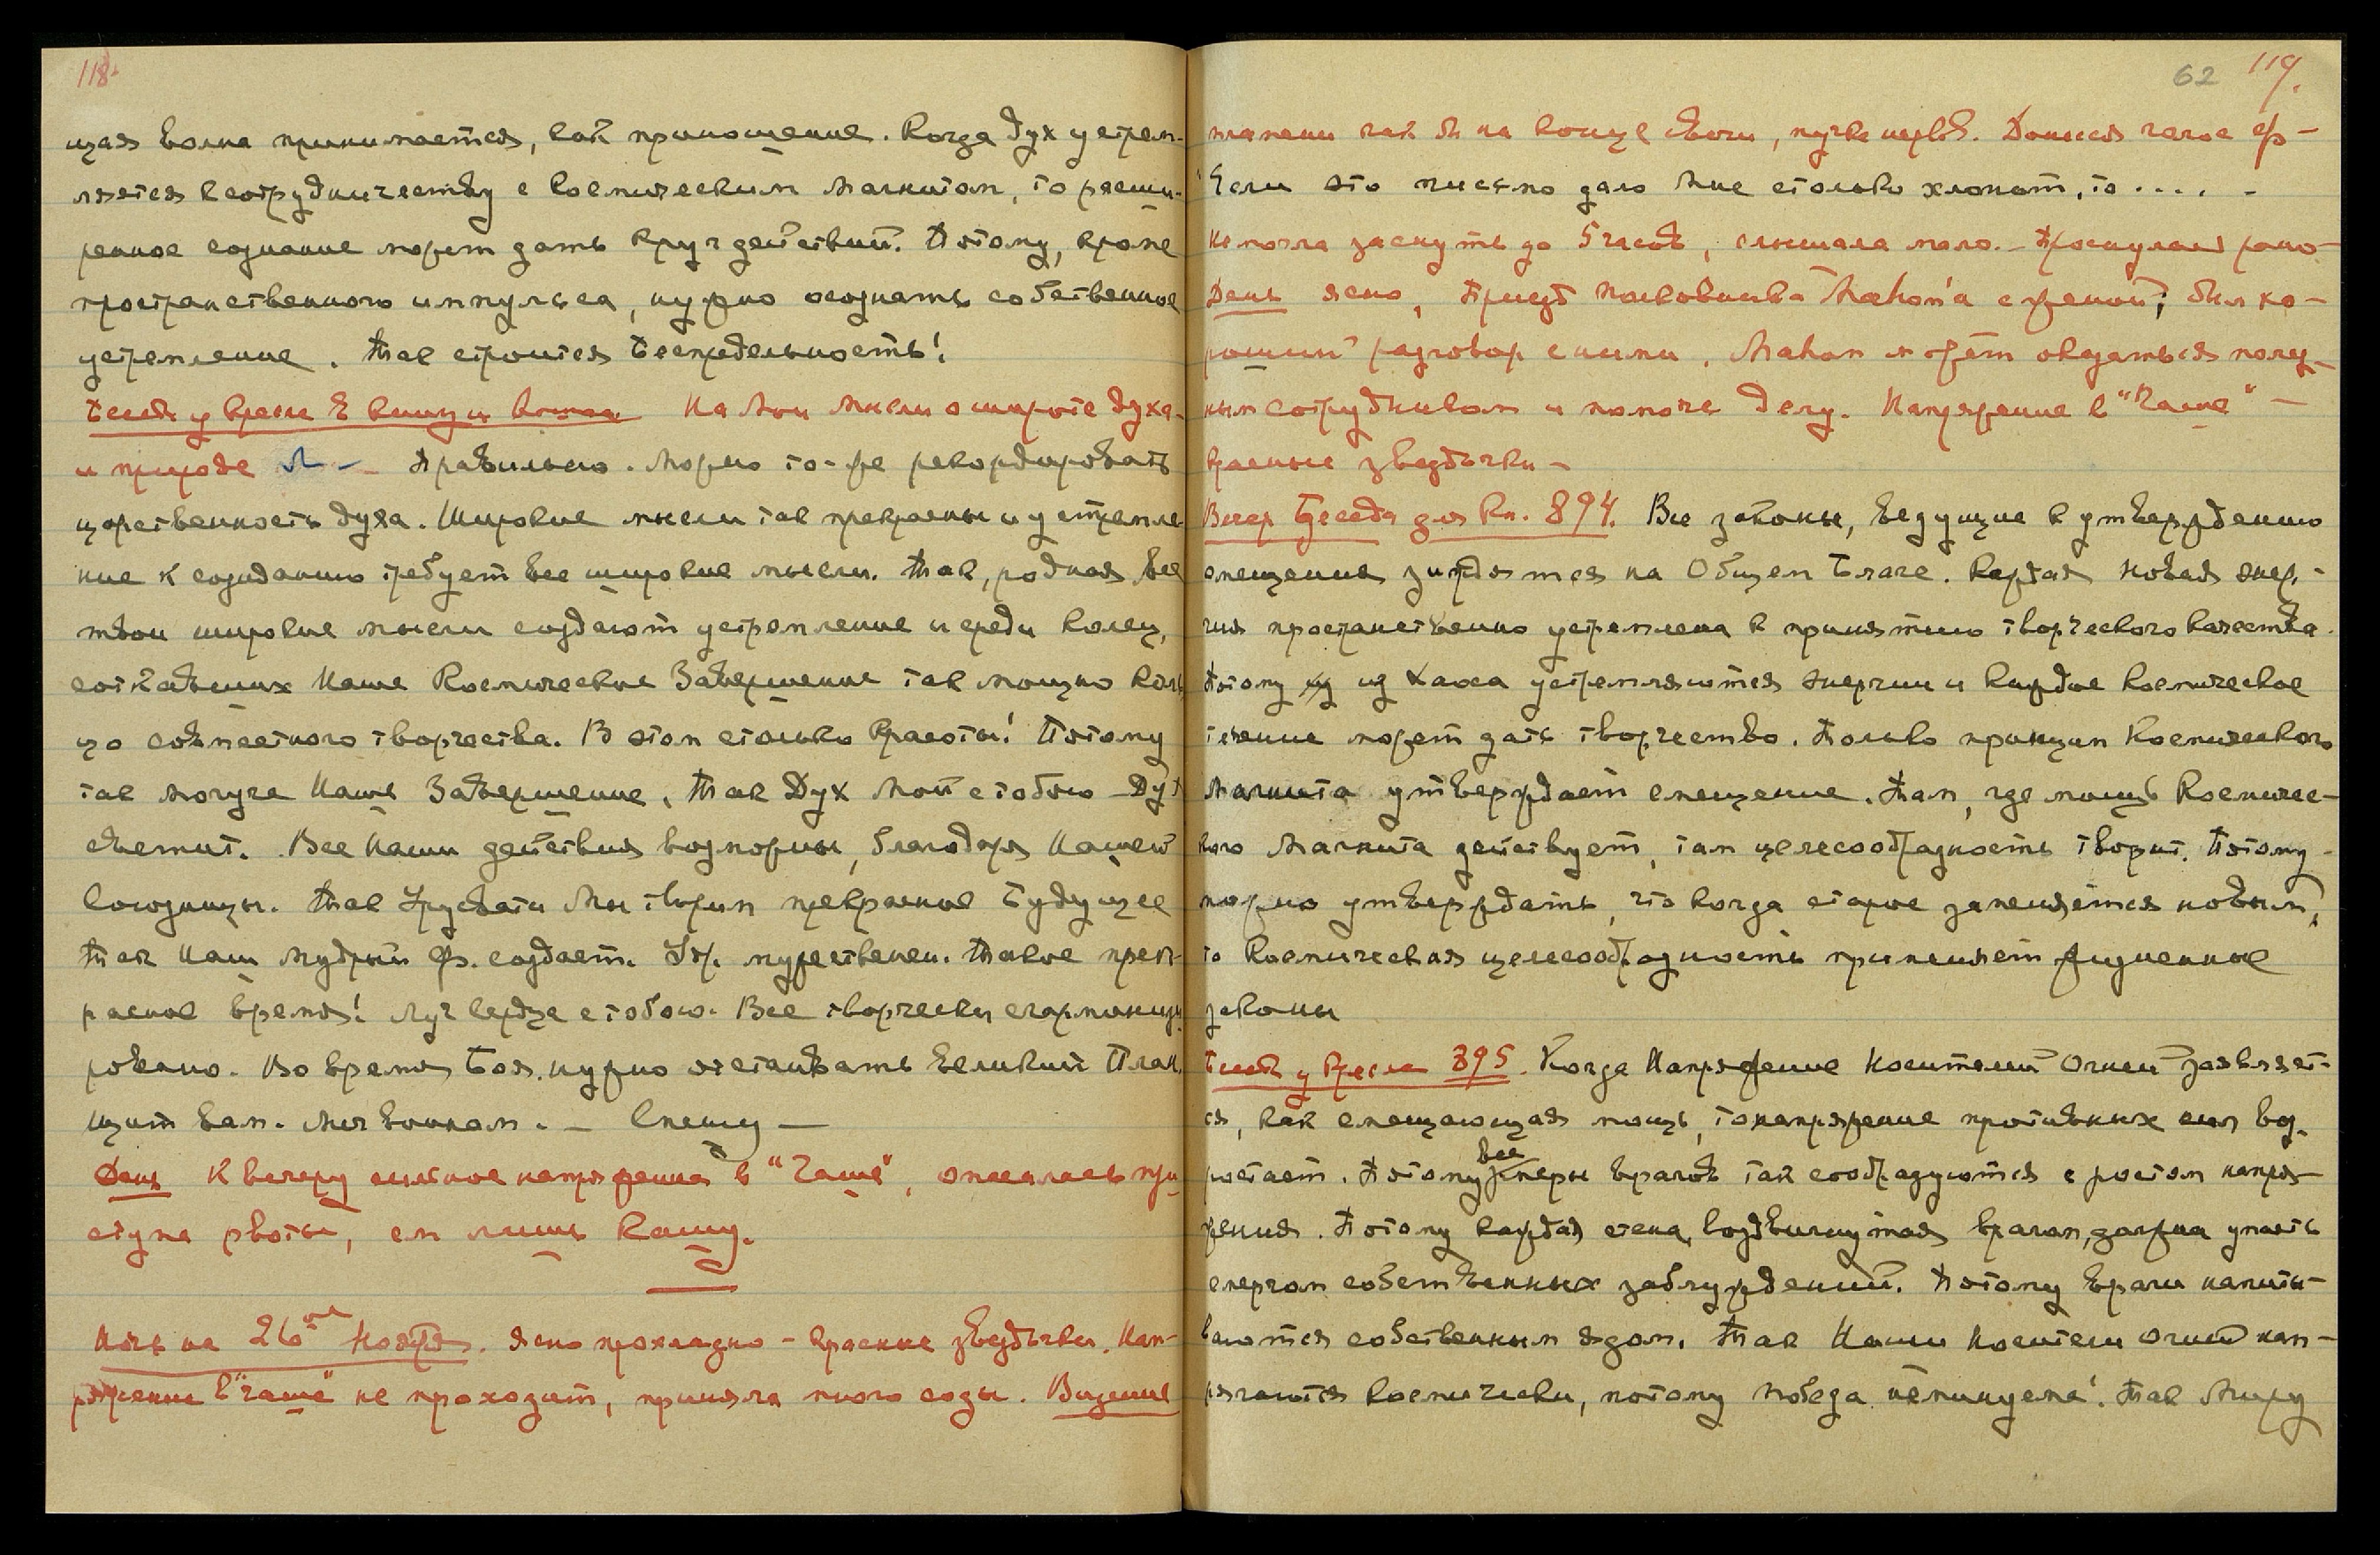 118
щая волна принимается, как приношение. Когда дух устрем-
ляется к сотрудничеству с Космическим Магнитом, то расши-
ренное сознание может дать круг действий. Потому, кроме
пространственного импульса, нужно осознать собственное
устремление. Так строится Беспредельность!
Беседа у кресла На Мои мысли о широте духа
и природе Л — Правильно. Можно то-же рекордировать
царственность духа. Широкие мысли так прекрасны и устремле
ние к созиданию требует все широкие мысли. Так, родная, все
твои широкие мысли создают устремление и среди колец,
соткавших Наше Космическое Завершение так мощно коль
цо совместного творчества. В этом столько Красоты! Потому
так могуче Наше Завершение, Так Дух Мой с тобою Дух
светит. Все Наши действия возможны, благодаря Нашей
союзницы. Так Урусвати Мы творим прекрасное Будущее
Так Наш Мудрый Ф. создает. Уд. мужественен. Такое прек-
расное время! Луч сердца с тобою. Все творчески сгармонизи
ровано. Во время Боя, нужно отстаивать Великий План.
Щит вам. Меч воинам. — Спешу —
День К вечеру сильное напряжение в "Чаше", опасалась при
ступа рвоты, ем лишь кашу.
Ночь на 26ое Ноября. Ясно прохладно - красные звездочки. Нап-
ряжение в "чаше" не проходит, приняла много соды. Видение
62 119.
пламени как бы на конце свечи, пучка нервов. Донесся голос Ф —
"Если это письмо дало мне столько хлопот, то . . . . -
Не могла заснуть до 5 часов, слышала мало. - Проснулась рано -
День ясно, Приезд полковника Mahon'a с женой; был хо-
роший разговор с ними. Mahon может оказаться полез-
ным сотрудником и помочь делу. Напряжение в "Чаше" —
Красные звездочки —
Вечер Беседа для кн. 894. Все законы, ведущие к утверждению
смещения зиждятся на Общем Благе. Каждая новая энер-
гия пространственно устремлена к принятию творческого качества.
Потому из Хаоса устремляются энергии и каждое космическое
течение может дать творчество. Только принцип Космического
Магнита утверждает смещение. Там, где мощь Космичес-
кого Магнита действует, там целесообразность творит. Потому -
можно утверждать, что когда старое заменяется новым,
то Космическая целесообразность применяет жизненные
законы
Беседа у кресла 895. Когда Напряжение Носителей Огней заявляет-
ся, как смещающая мощь, то напряжение противных сил воз-
растает. Потому все меры врагов так сообразуются с ростом напря-
жения. Потому каждая стена, воздвигнутая врагом, должна упасть
смерчом собственных заблуждений. Потому враги напиты-
ваются собственным ядом. Так Наши Носители огней нап-
рягаются космически, потому победа неминуема! Так Миру